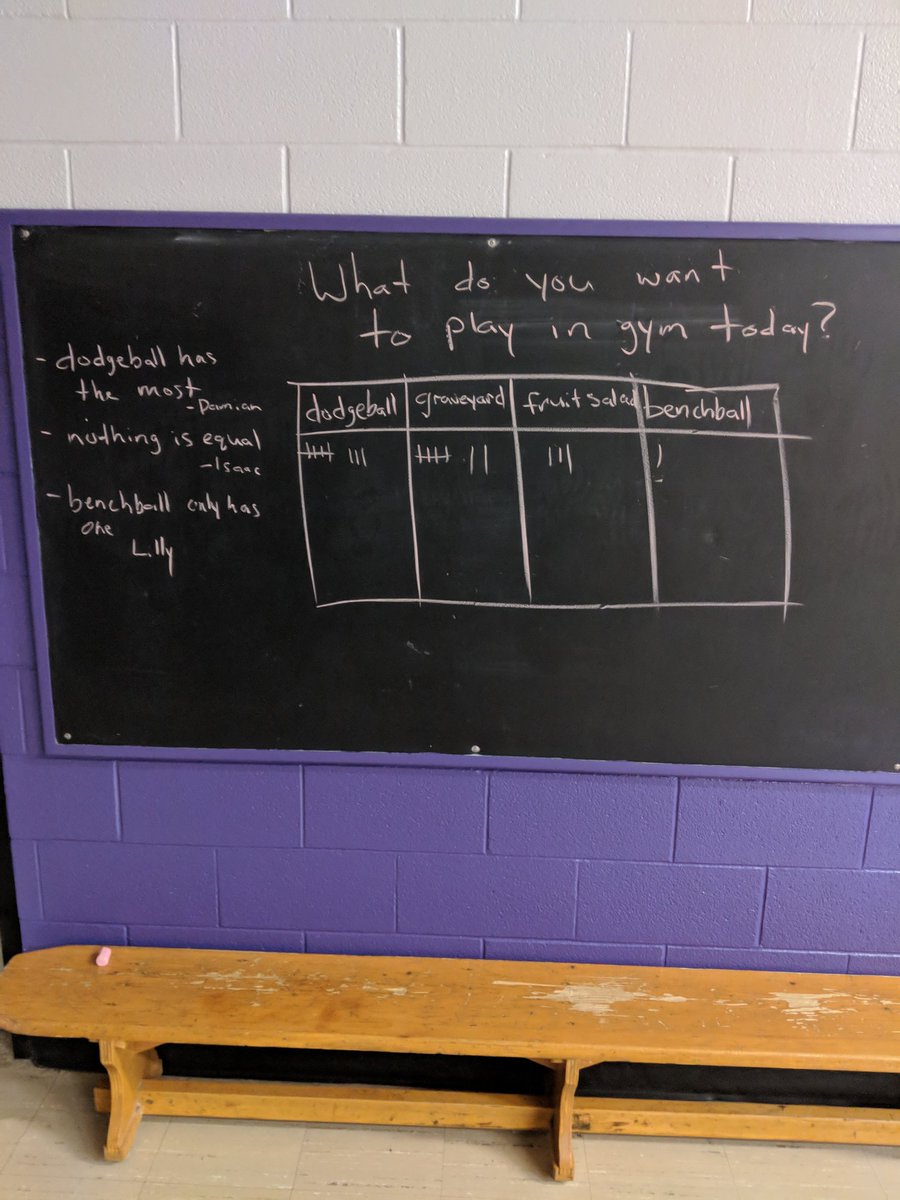 What do you want
to play in gym today?
- dodgeball has
the most
- Damian
- nothing is equal
- Isaac
- benchball only has
one
Lilly
dodgeball graveyard fruit salad benchball